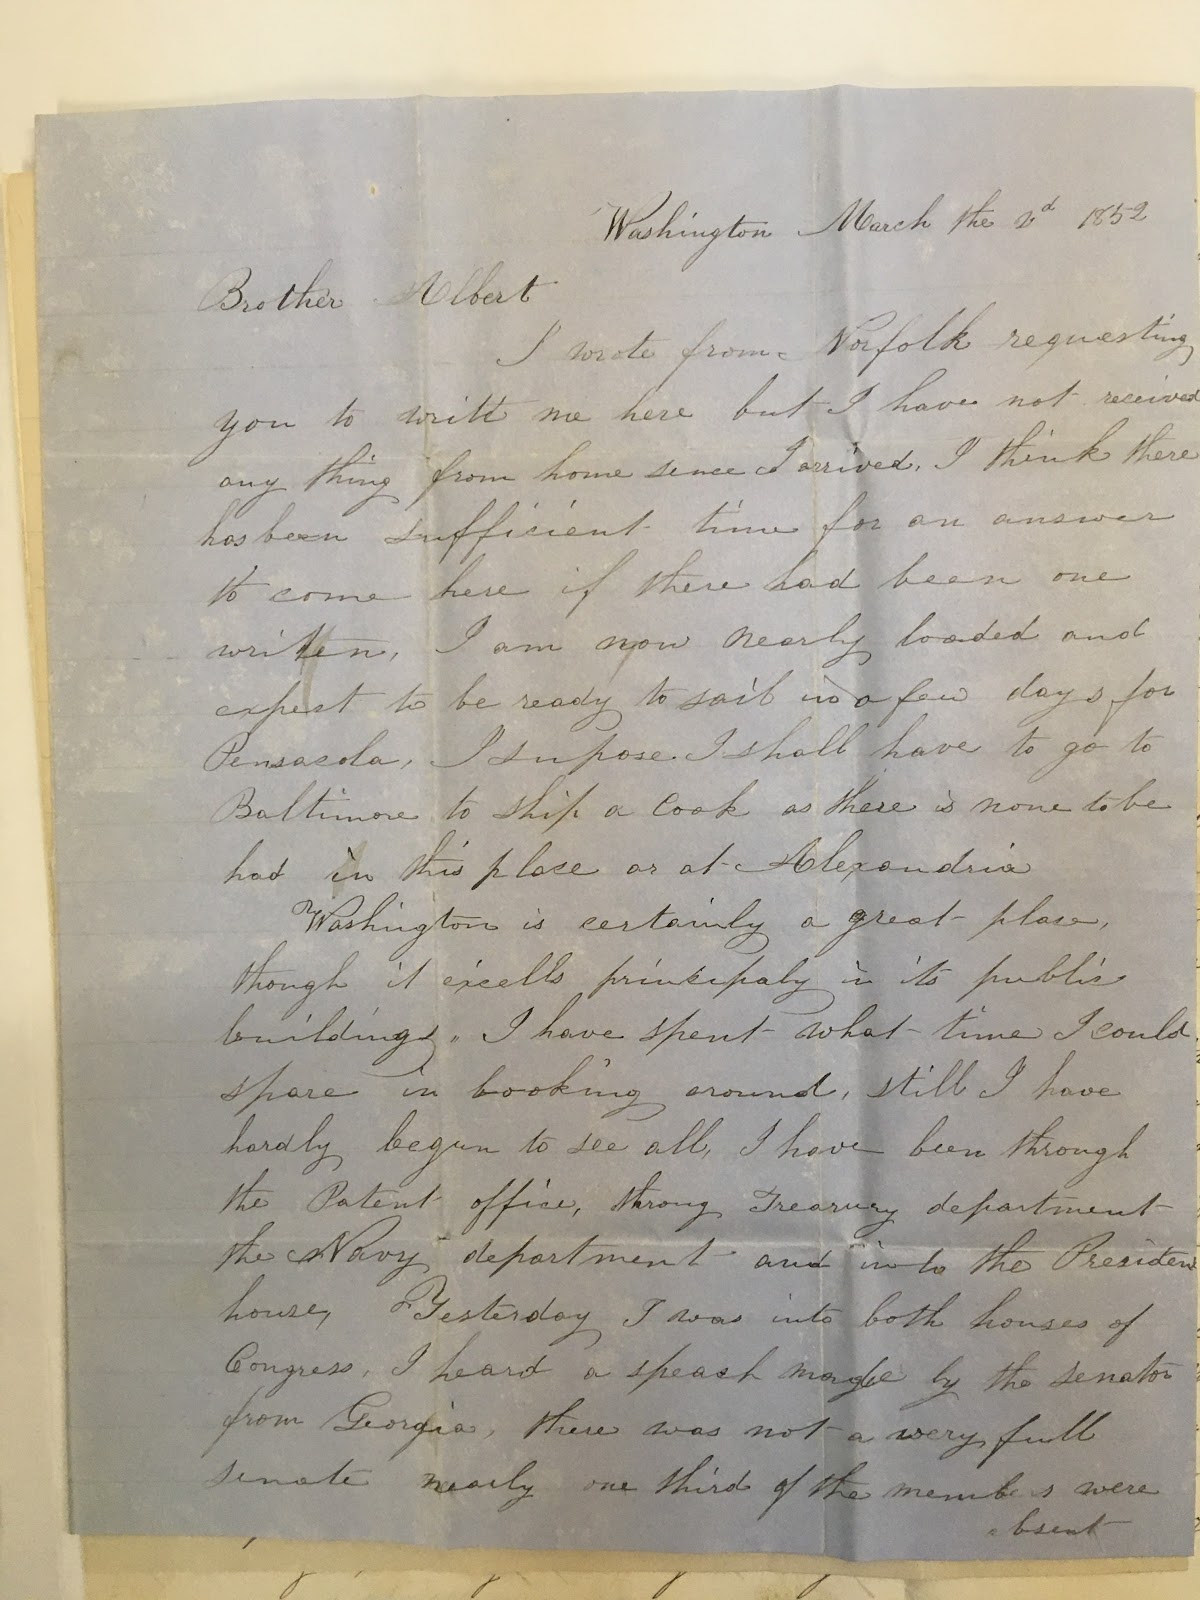 Washington March the 2d 1852
Brother Albert
I wrote from Norfolk requesting
you to writt me here but I have not received
any thing from home sence I arrived. I think there
has been sufficient time for an answer
to come here if there had been one
written, I am now nearly loaded and
expect to be ready to sail in a few days for
Pensacola, I supose I shall have to go to
Baltimore to ship a Cook as there is none to be
had in this place or at Alexandria
Washington is certainly a great place,
though it excells principaly in its public
buildings, I have spent what time I could
spare in looking around, still I have
hardly begun to see all, I have been through
the Patent office, throug Treasury department
the Navy department and into the Presiden
house, Yesterday I was into both houses of
Congress, I heard a speach made by the senator
from Georgia, there was not a very full
senate nearly one third of the members were
absent